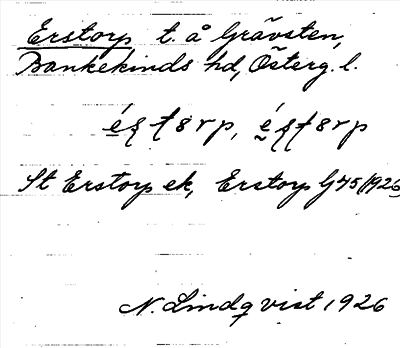 Erstorp t. å Grävsten,
Bankekinds hd, Österg. l.
St Erstorp ek, Erstorp G 45/1926
N. Lindqvist 1926